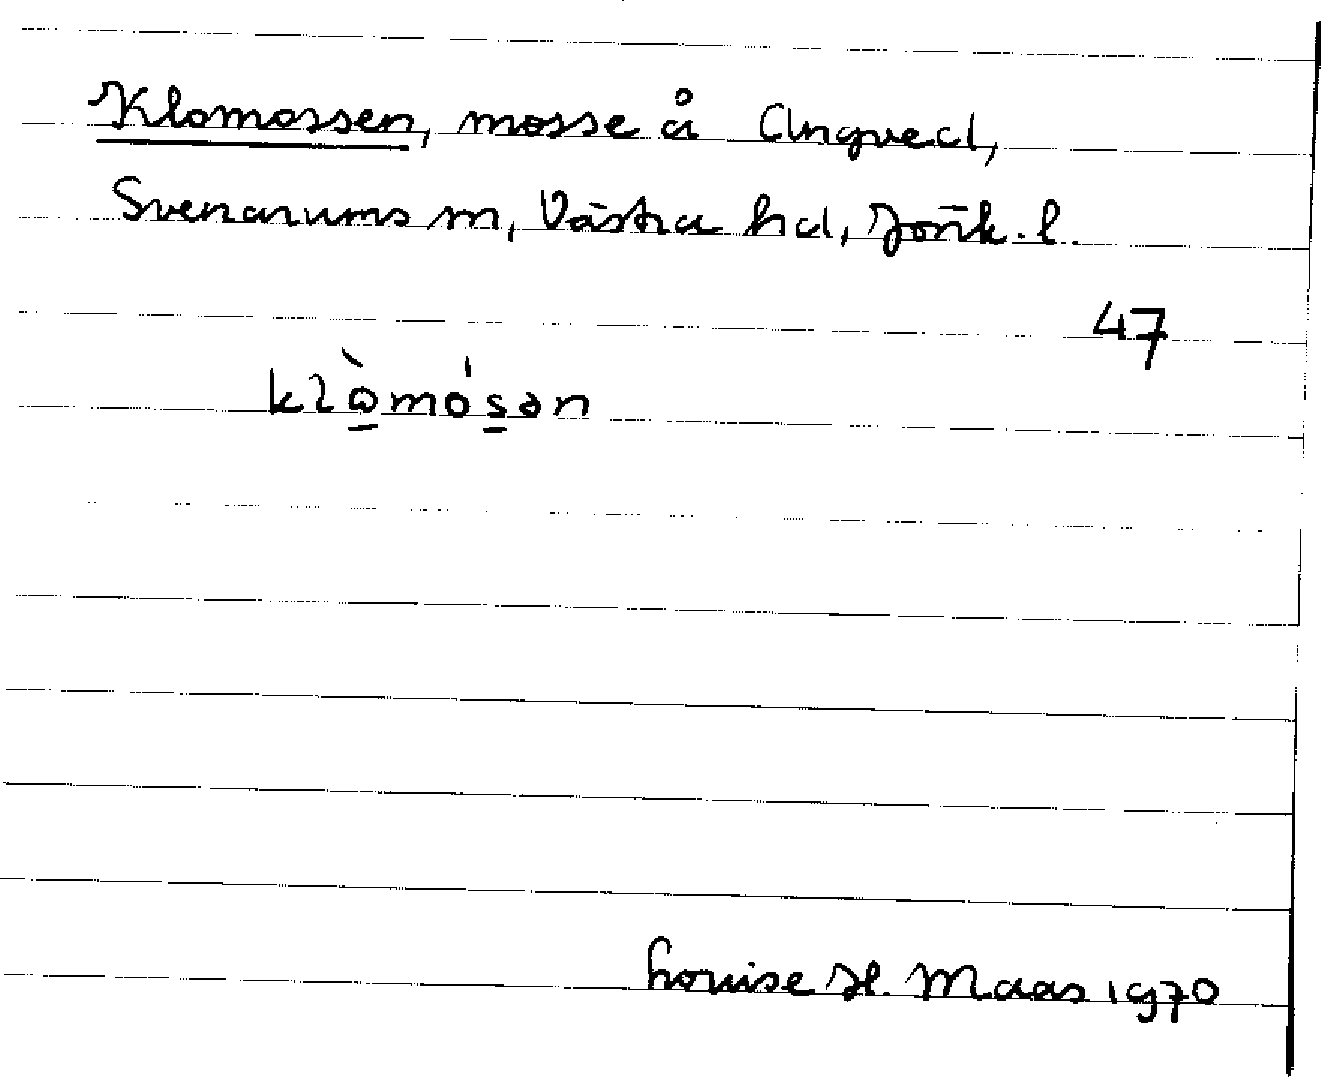 Klomossen, mosse å Ångved,
Svenarums sn, Västra hd, Jönk. l.
47
klòmósən
Louise H. Maas 1970